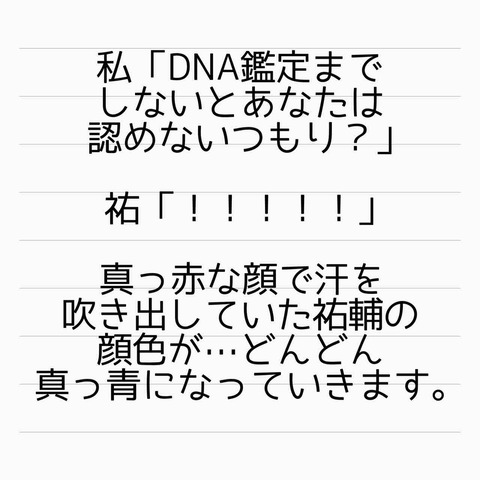 私「DNA鑑定まで
しないとあなたは
認めないつもり？」
祐「！！！！！」
真っ赤な顔で汗を
吹き出していた祐輔の
顔色が…どんどん
真っ青になっていきます。